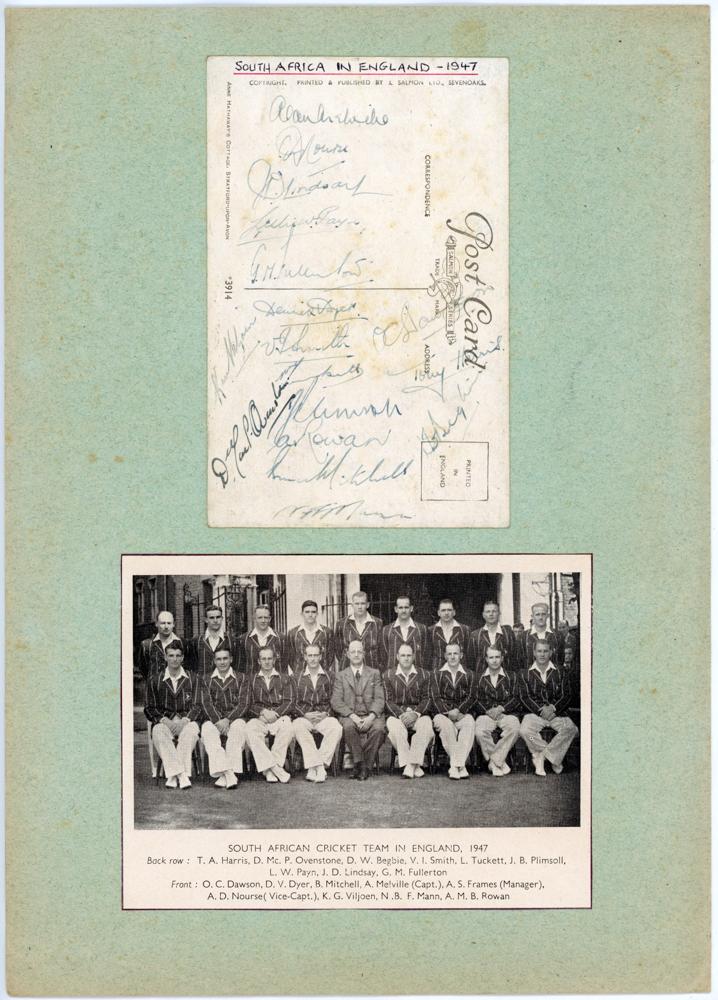 SOUTH AFRICA IN ENGLAND - 1947
COPYRIGHT. PRINTED & PUBLISHED BY J. SALMON LTD., SEVENOAKS.
ANNE HATHAWAY'S COTTAGE, STRATFORD-UPON-AVON
*3914
CORRESPONDENCE
Post Card
TRADE MARK
SALMON SERIES
ADDRESS
PRINTED
IN
ENGLAND
Alan Melville
D Nourse
J D Lindsay
Leslie W Payn
G. M. Fullerton
Dennis Dyer
V I Smith
L Tuckett
J B Plimsoll
A Rowan
Bruce Mitchell
N B F Mann
Ken Viljoen
D Mc P. Ovenstone
O C Dawson
Tony Harris
D W Begbie
SOUTH AFRICAN CRICKET TEAM IN ENGLAND, 1947
Back row : T. A. Harris, D. Mc. P. Ovenstone, D. W. Begbie, V. I. Smith, L. Tuckett, J. B. Plimsoll,
L. W. Payn, J. D. Lindsay, G. M. Fullerton
Front : O. C. Dawson, D. V. Dyer, B. Mitchell, A. Melville (Capt.), A. S. Frames (Manager),
A. D. Nourse( Vice-Capt.), K. G. Viljoen, N .B. F. Mann, A. M. B. Rowan